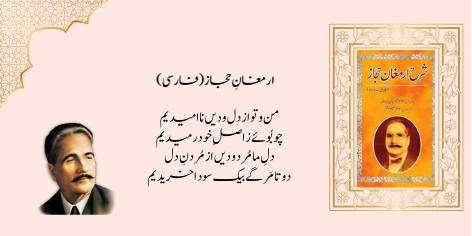 ارمغانِ حجاز (فارسی)
من و تو از دل و دیں ناامیدیم
چو بُوئے ز اصلِ خود رمیدیم
دلِ ما مُرد و دیں از مُردنِ دل
دو تا مرگے بیک سودا خریدیم
شرح ارمغان حجاز